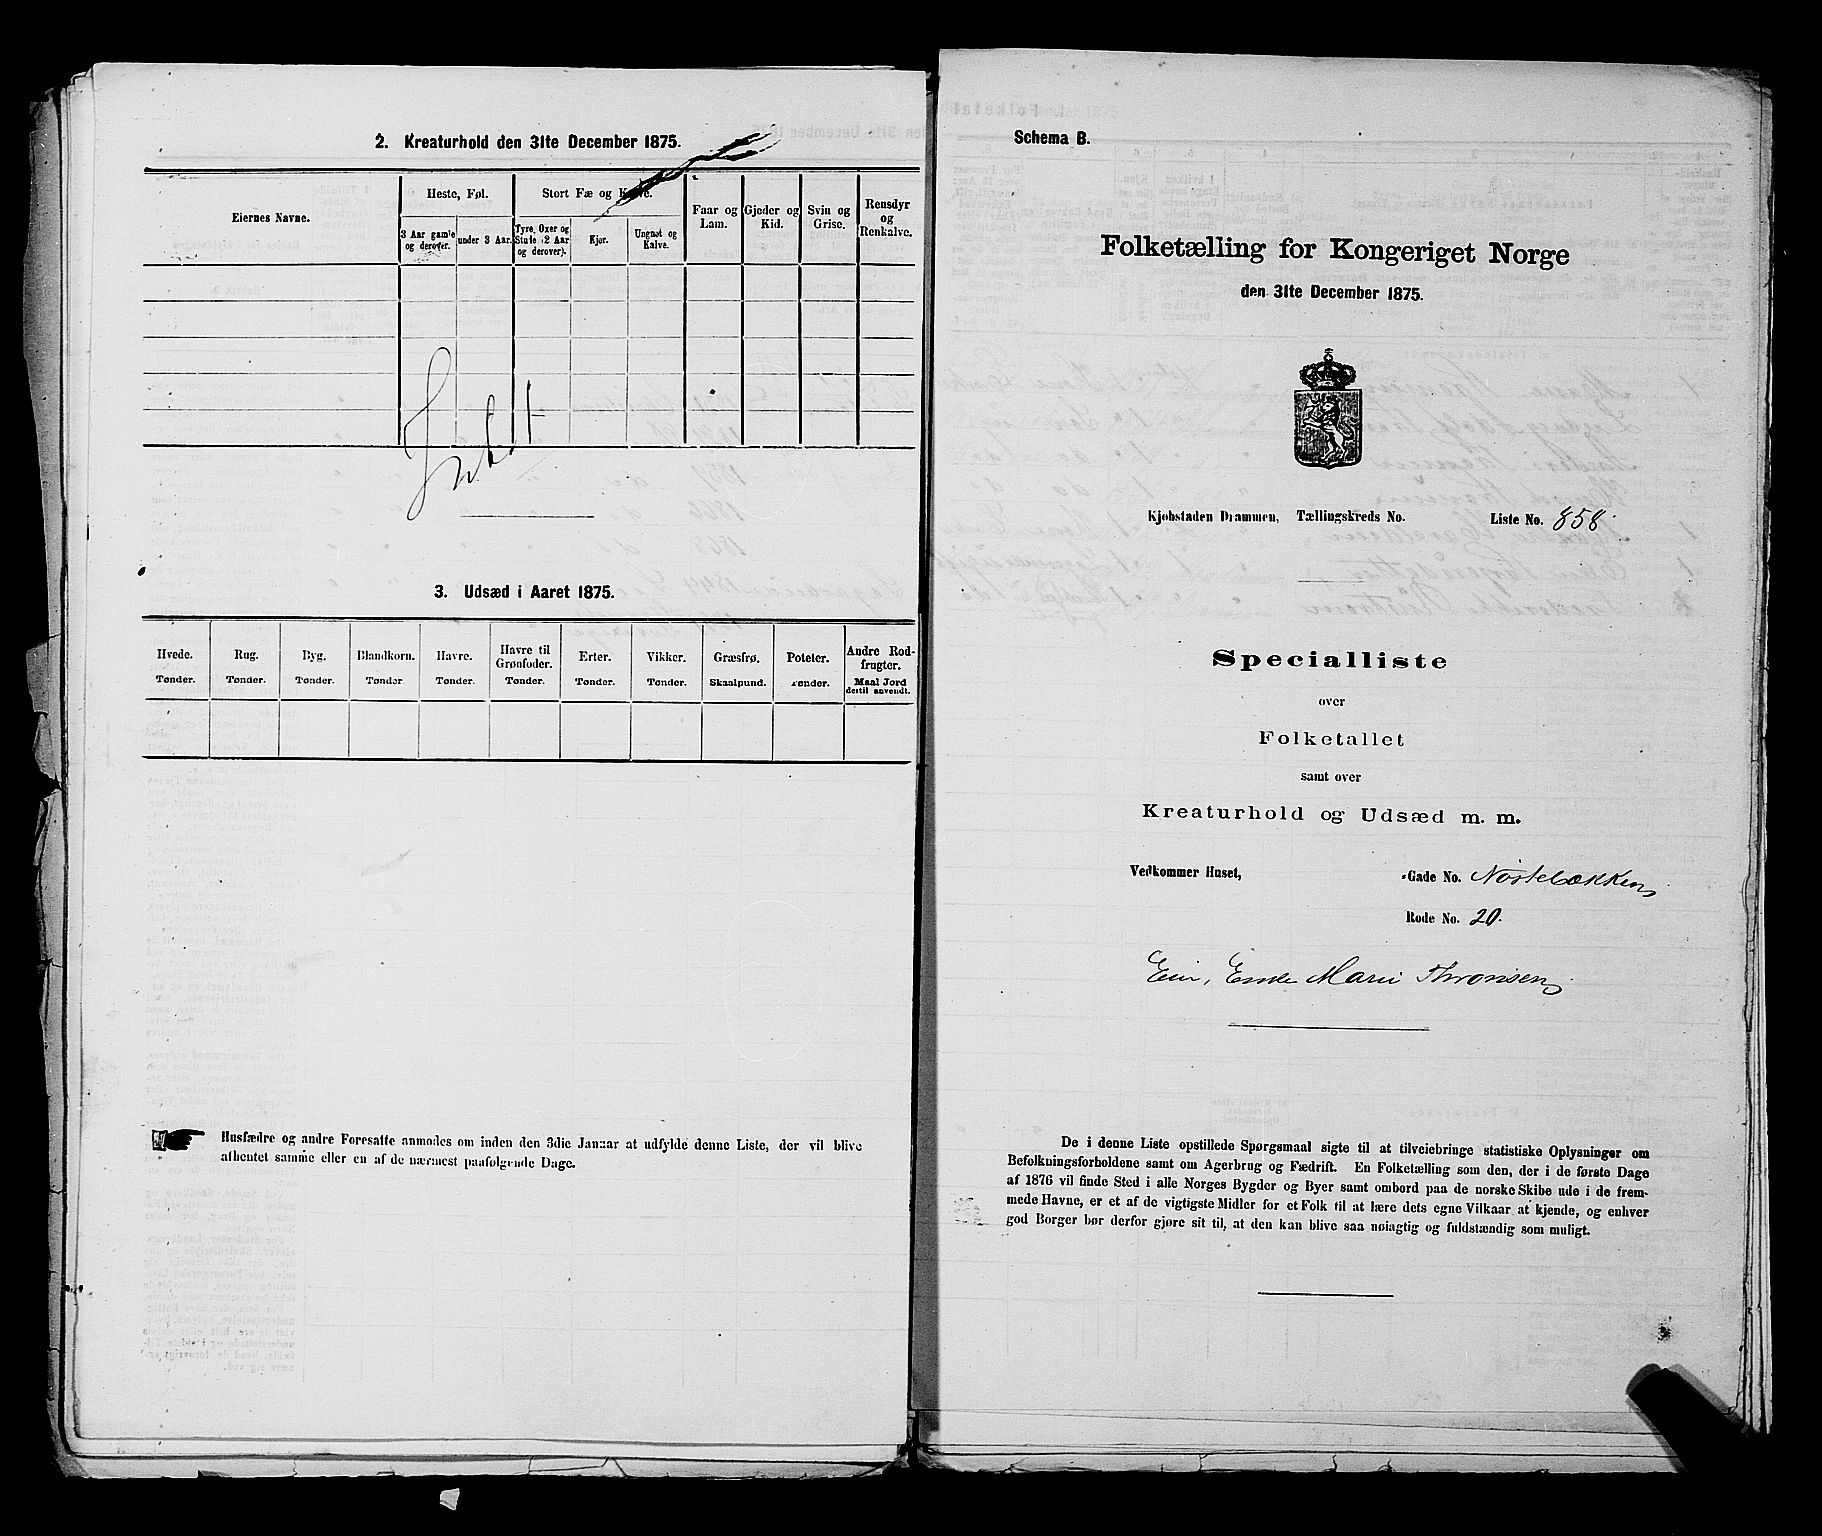 2. Kreaturhold den 31te December 1875.
Eiernes Navne.
Heste, Føl.
Stort Fæ og Kalve.
Faar og Lam.
Gjeder og Kid.
Svin og Grise.
Rensdyr og Renkalve.
3 Aar gamle og derover.
under 3 Aar.
Tyre, Oxer og Stude (2 Aar og derover).
Kjør.
Ungnøt og Kalve.
Intet
3. Udsæd i Aaret 1875.
Hvede. Rug. Byg. Blandkorn. Havre. Havre til Grønfoder. Erter. Vikker. Græsfrø. Poteter. Andre Rodfrugter.
Tønder. Tønder. Tønder. Tønder. Tønder. Tønder. Tønder. Tønder. Skaalpund. Tønder. Maal Jord dertil anvendt.
Husfædre og andre Foresatte anmodes om inden den 3die Januar at udfylde denne Liste, der vil blive
afhentet samme eller en af de nærmest paafølgende Dage.
Schema B.
Folketælling for Kongeriget Norge
den 31te December 1875.
Kjøbstaden Drammen, Tællingskreds No. Liste No. 858.
Specialliste
over
Folketallet
samt over
Kreaturhold og Udsæd m. m.
Vedkommer Huset, Gade No. Nøstebækken
Rode No. 20.
Eier, Enke Marie Thronsen
De i denne Liste opstillede Spørgsmaal sigte til at tilveiebringe statistiske Oplysninger om
Befolkningsforholdene samt om Agerbrug og Fædrift. En Folketælling som den, der i de første Dage
af 1876 vil finde Sted i alle Norges Bygder og Byer samt ombord paa de norske Skibe ude i de frem-
mede Havne, er et af de vigtigste Midler for et Folk til at lære dets egne Vilkaar at kjende, og enhver
god Borger bør derfor gjøre sit til, at den kan blive saa nøiagtig og fuldstændig som muligt.